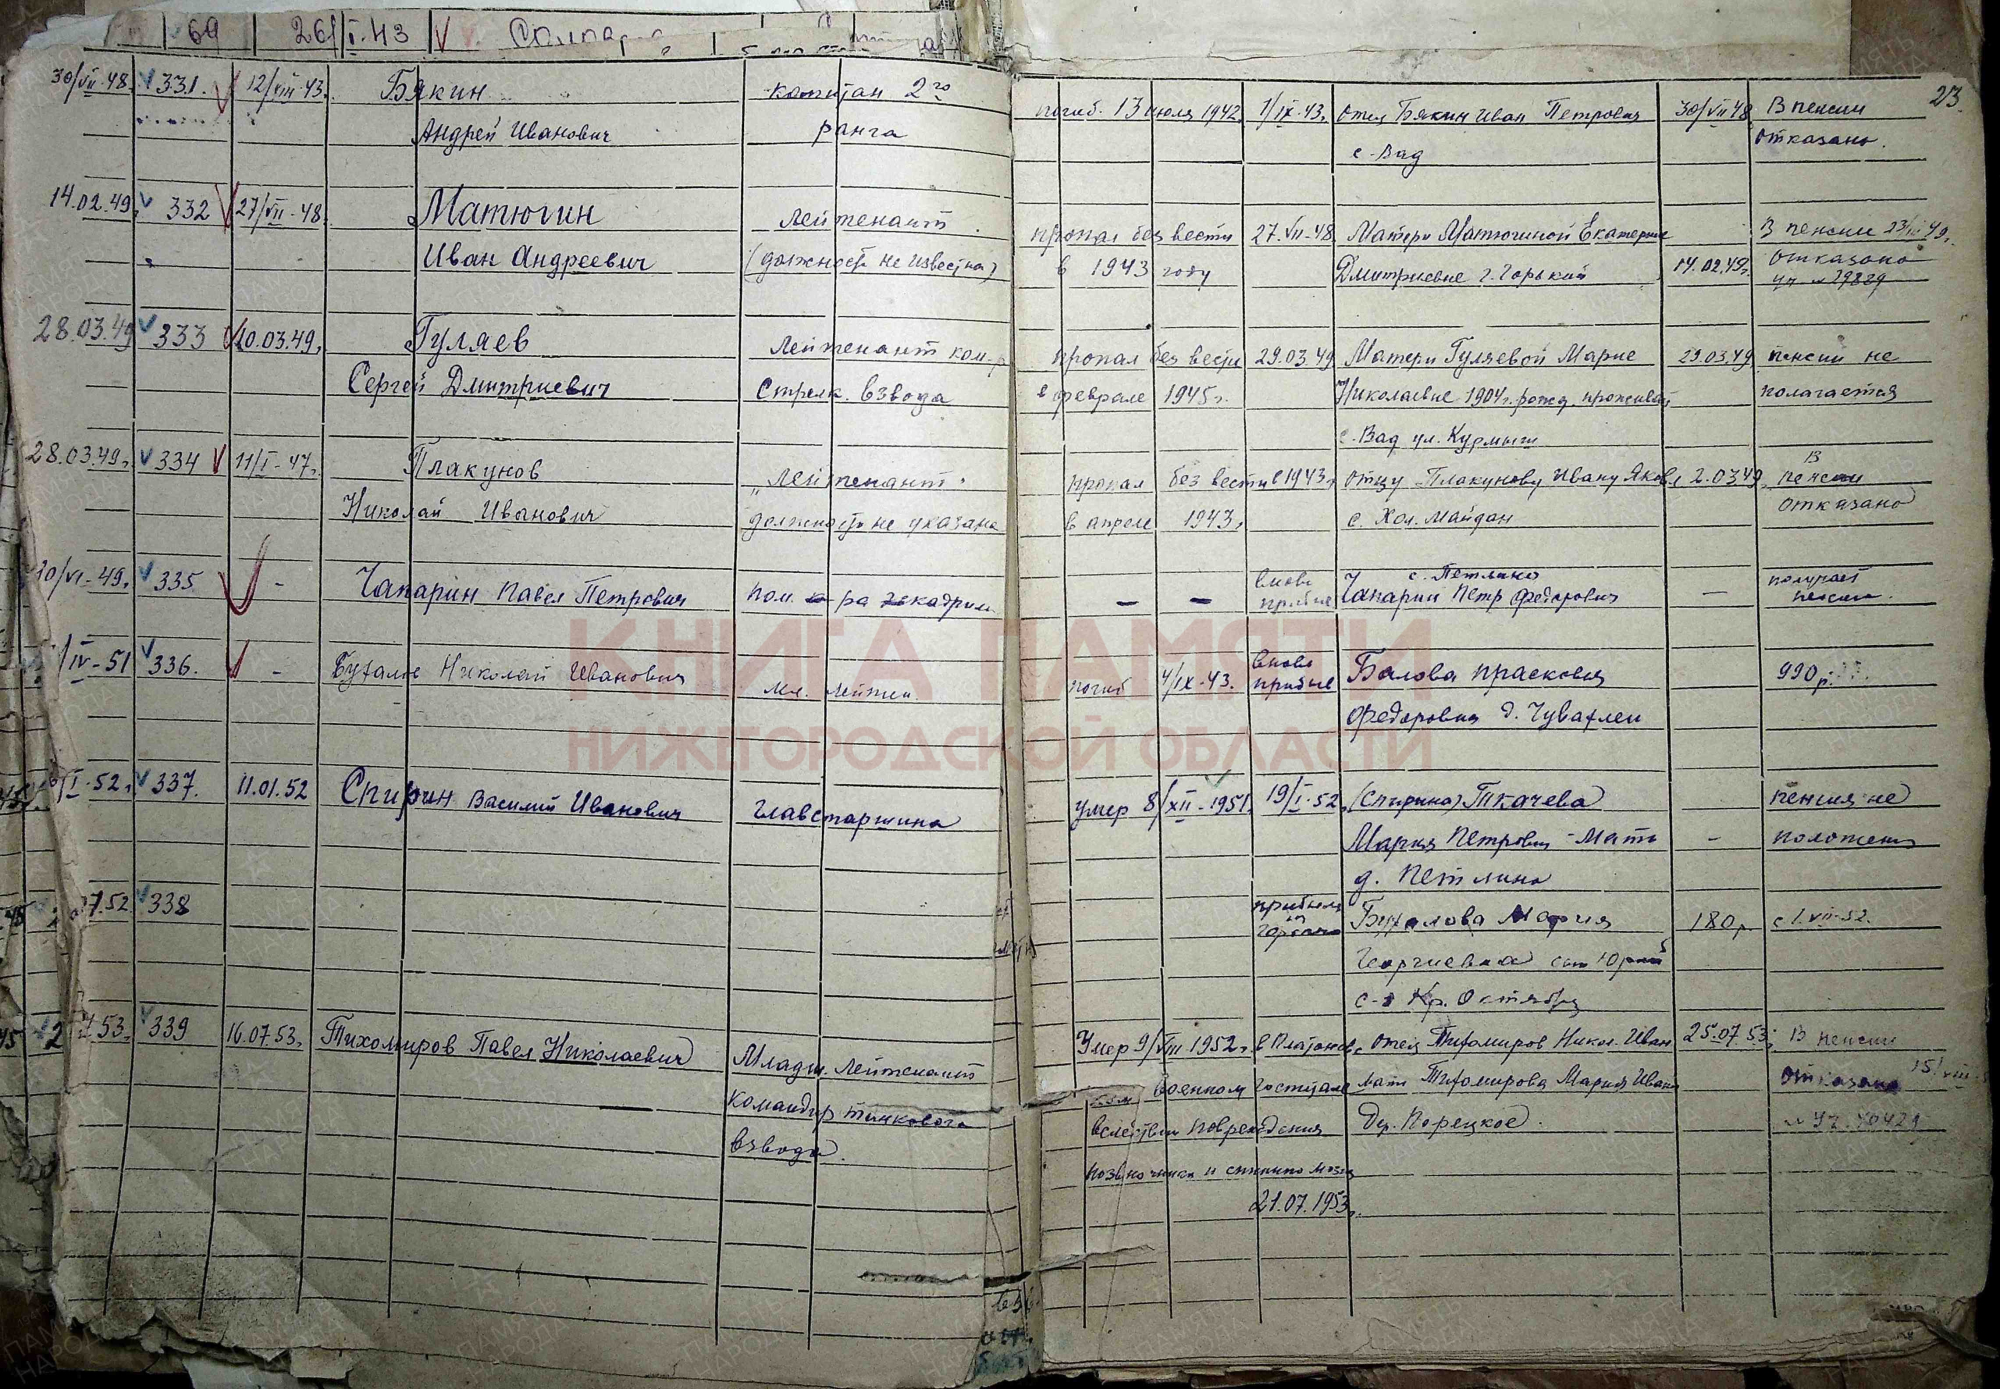 69 26/I-43
23
30/VII-48. 331. 12/VIII-43. Бякин капитан 2го погиб. 13 июля 1942. 1/IX-43. отец Бякин Иван Петрович 30/VII 48 В пенсии
Андрей Иванович ранга с. Вад отказано.
14.02.49, 332 27/VII-48. Матюгин лейтенант пропал без вести 27.VII-48 Матери Матюгиной Екатерине В пенсии
Иван Андреевич (должность не известна) в 1943 году Дмитриевне г. Горький 14.02.49г. отказано
28.03.49 333 20.03.49, Гуляев Лейтенант ком-р пропал без вести 29.03.49 Матери Гуляевой Марие 29.03.49 пенсии не
Сергей Дмитриевич стрелк. взвода в феврале 1945г. Николаевне 1904г. рожд. прожив. полагается
с. Вад ул. Курмыш
28.03.49г. 334 11/I-47г. Плакунов „Лейтенант" пропал без вести в 1943г. отцу Плакунову Ивану Яков. 2.03.49. В пенсии
Николай Иванович должность не указана в апреле 1943г. с. Хол. Майдан отказано
10/VI-49г. 335 - Чапарин Павел Петрович пом. к-ра эскадрил. - - вновь прибыл с. Петлино Чапарин Петр Федорович - получает пенсию.
/IV-51 336. - Николай Иванович мл. лейтен. погиб 4/IX-43. вновь прибыл Балова Прасковья 990 р.
Федоровна д. Чуварлеи
/I-52г. 337. 11.01.52 Спирин Василий Иванович главстаршина умер 8/XII-1951. 19/I-52. (Спирина) Ткачева - пенсия не
Мария Петровна - Мать - положена
д. Петлино
7.52 338 прибыла из Мария 180 р. с 1.VII-52.
Георгиевна сын Юрий
с-з Кр. Октябрь
53. 339 16.07.53. Тихомиров Павел Николаевич Младш. Лейтенант Умер 9/VIII 1952г. в отец Тихомиров Никол. Иван 25.07.53г. В пенсии
командир танкового военном госпитале мать Тихомирова Мария Иван отказано 15/VIII
взвода. вследствии повреждения Дер. Порецкое.
позвоночника и спинно мозга
21.07.1953г.
КНИГА ПАМЯТИ
НИЖЕГОРОДСКОЙ ОБЛАСТИ